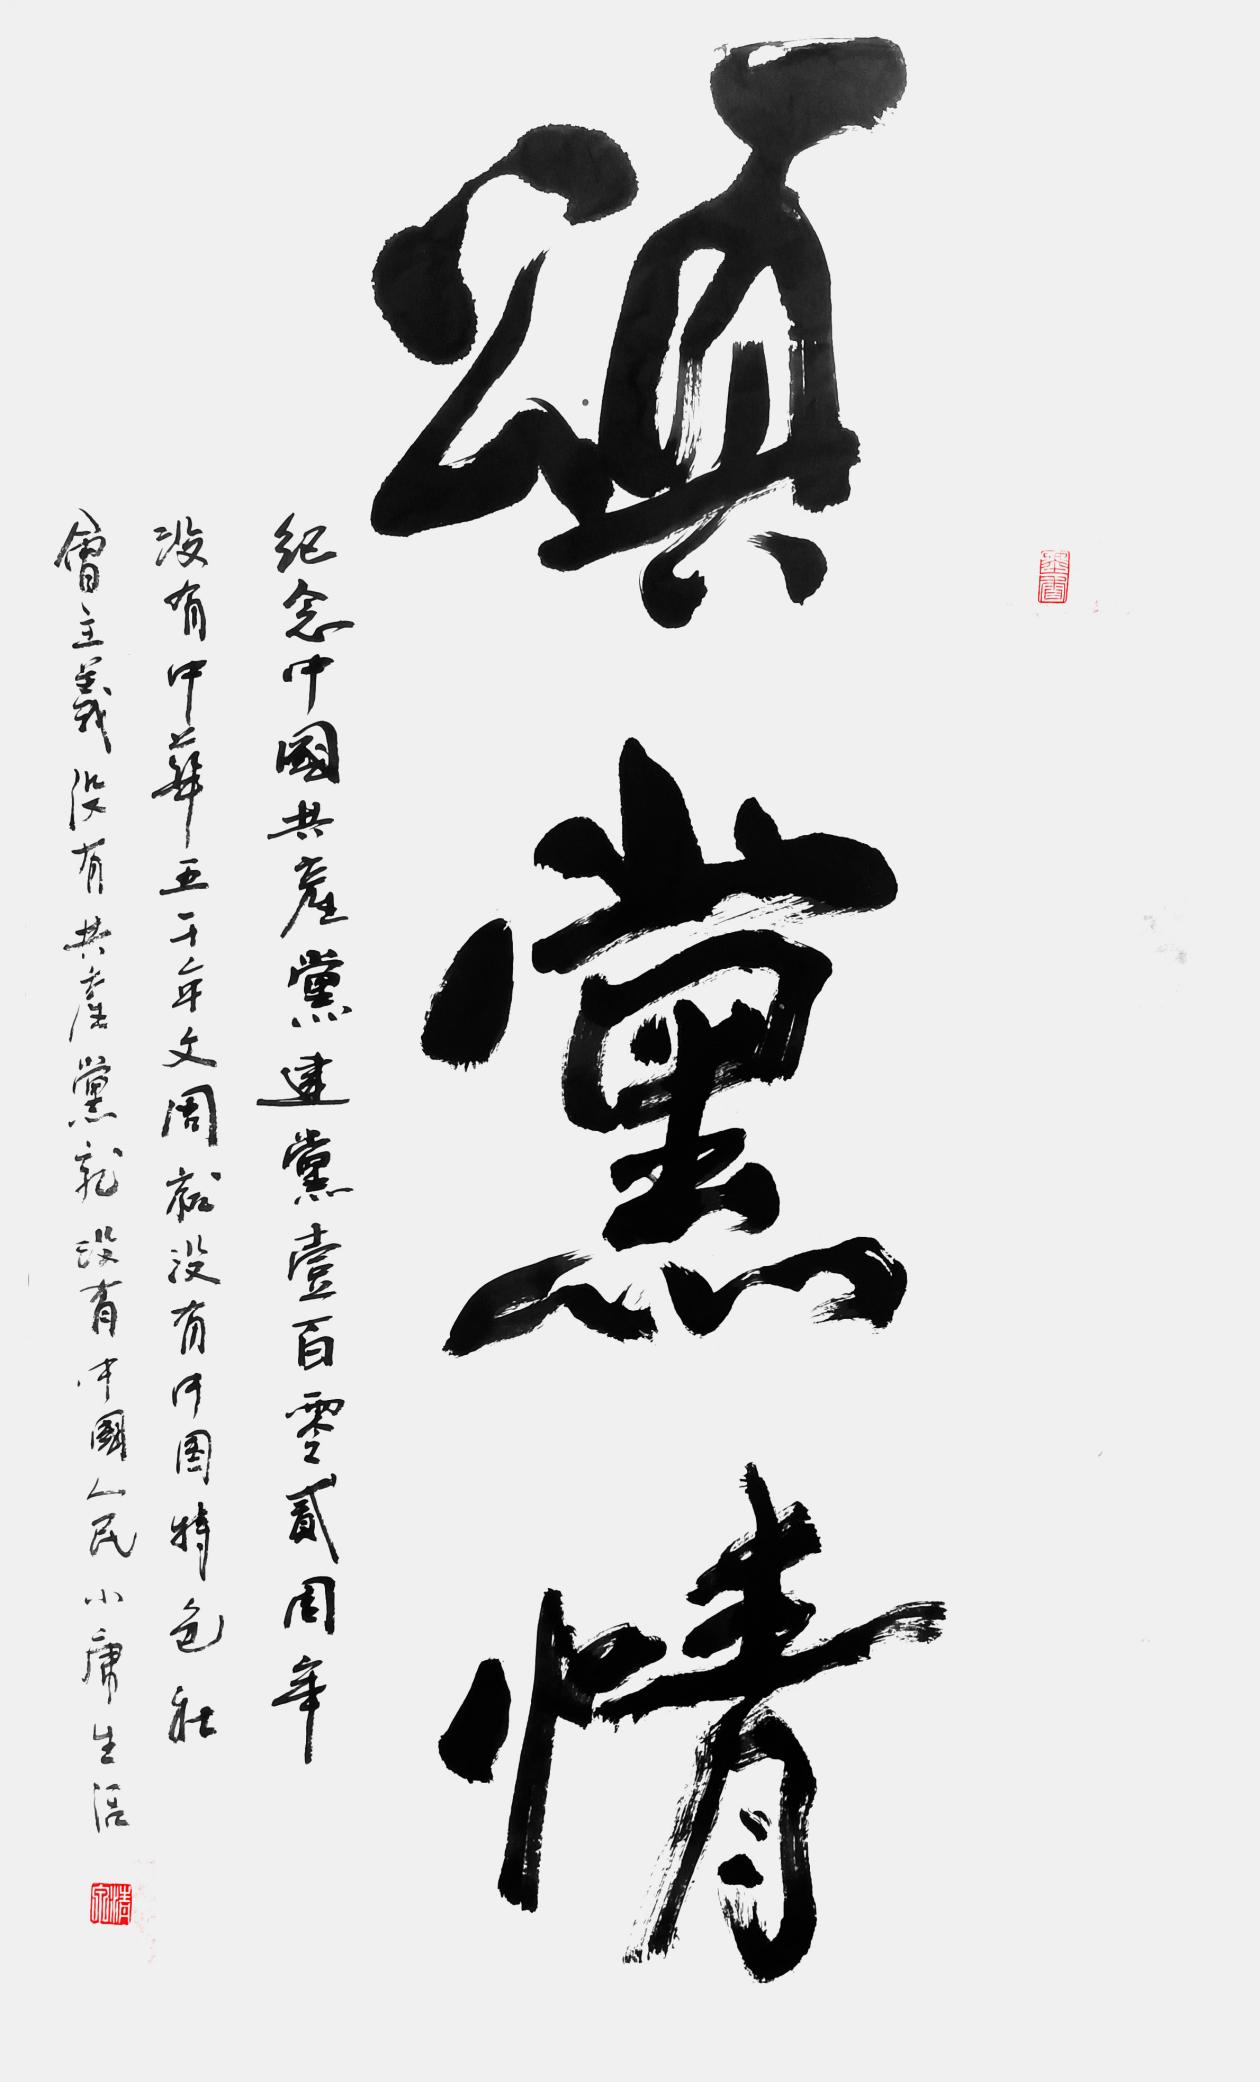 頌黨情
纪念中國共産黨建黨壹百零貳周年
没有中華五千年文周就没有中国特色社
會主義没有共産黨就没有中國人民小康生活